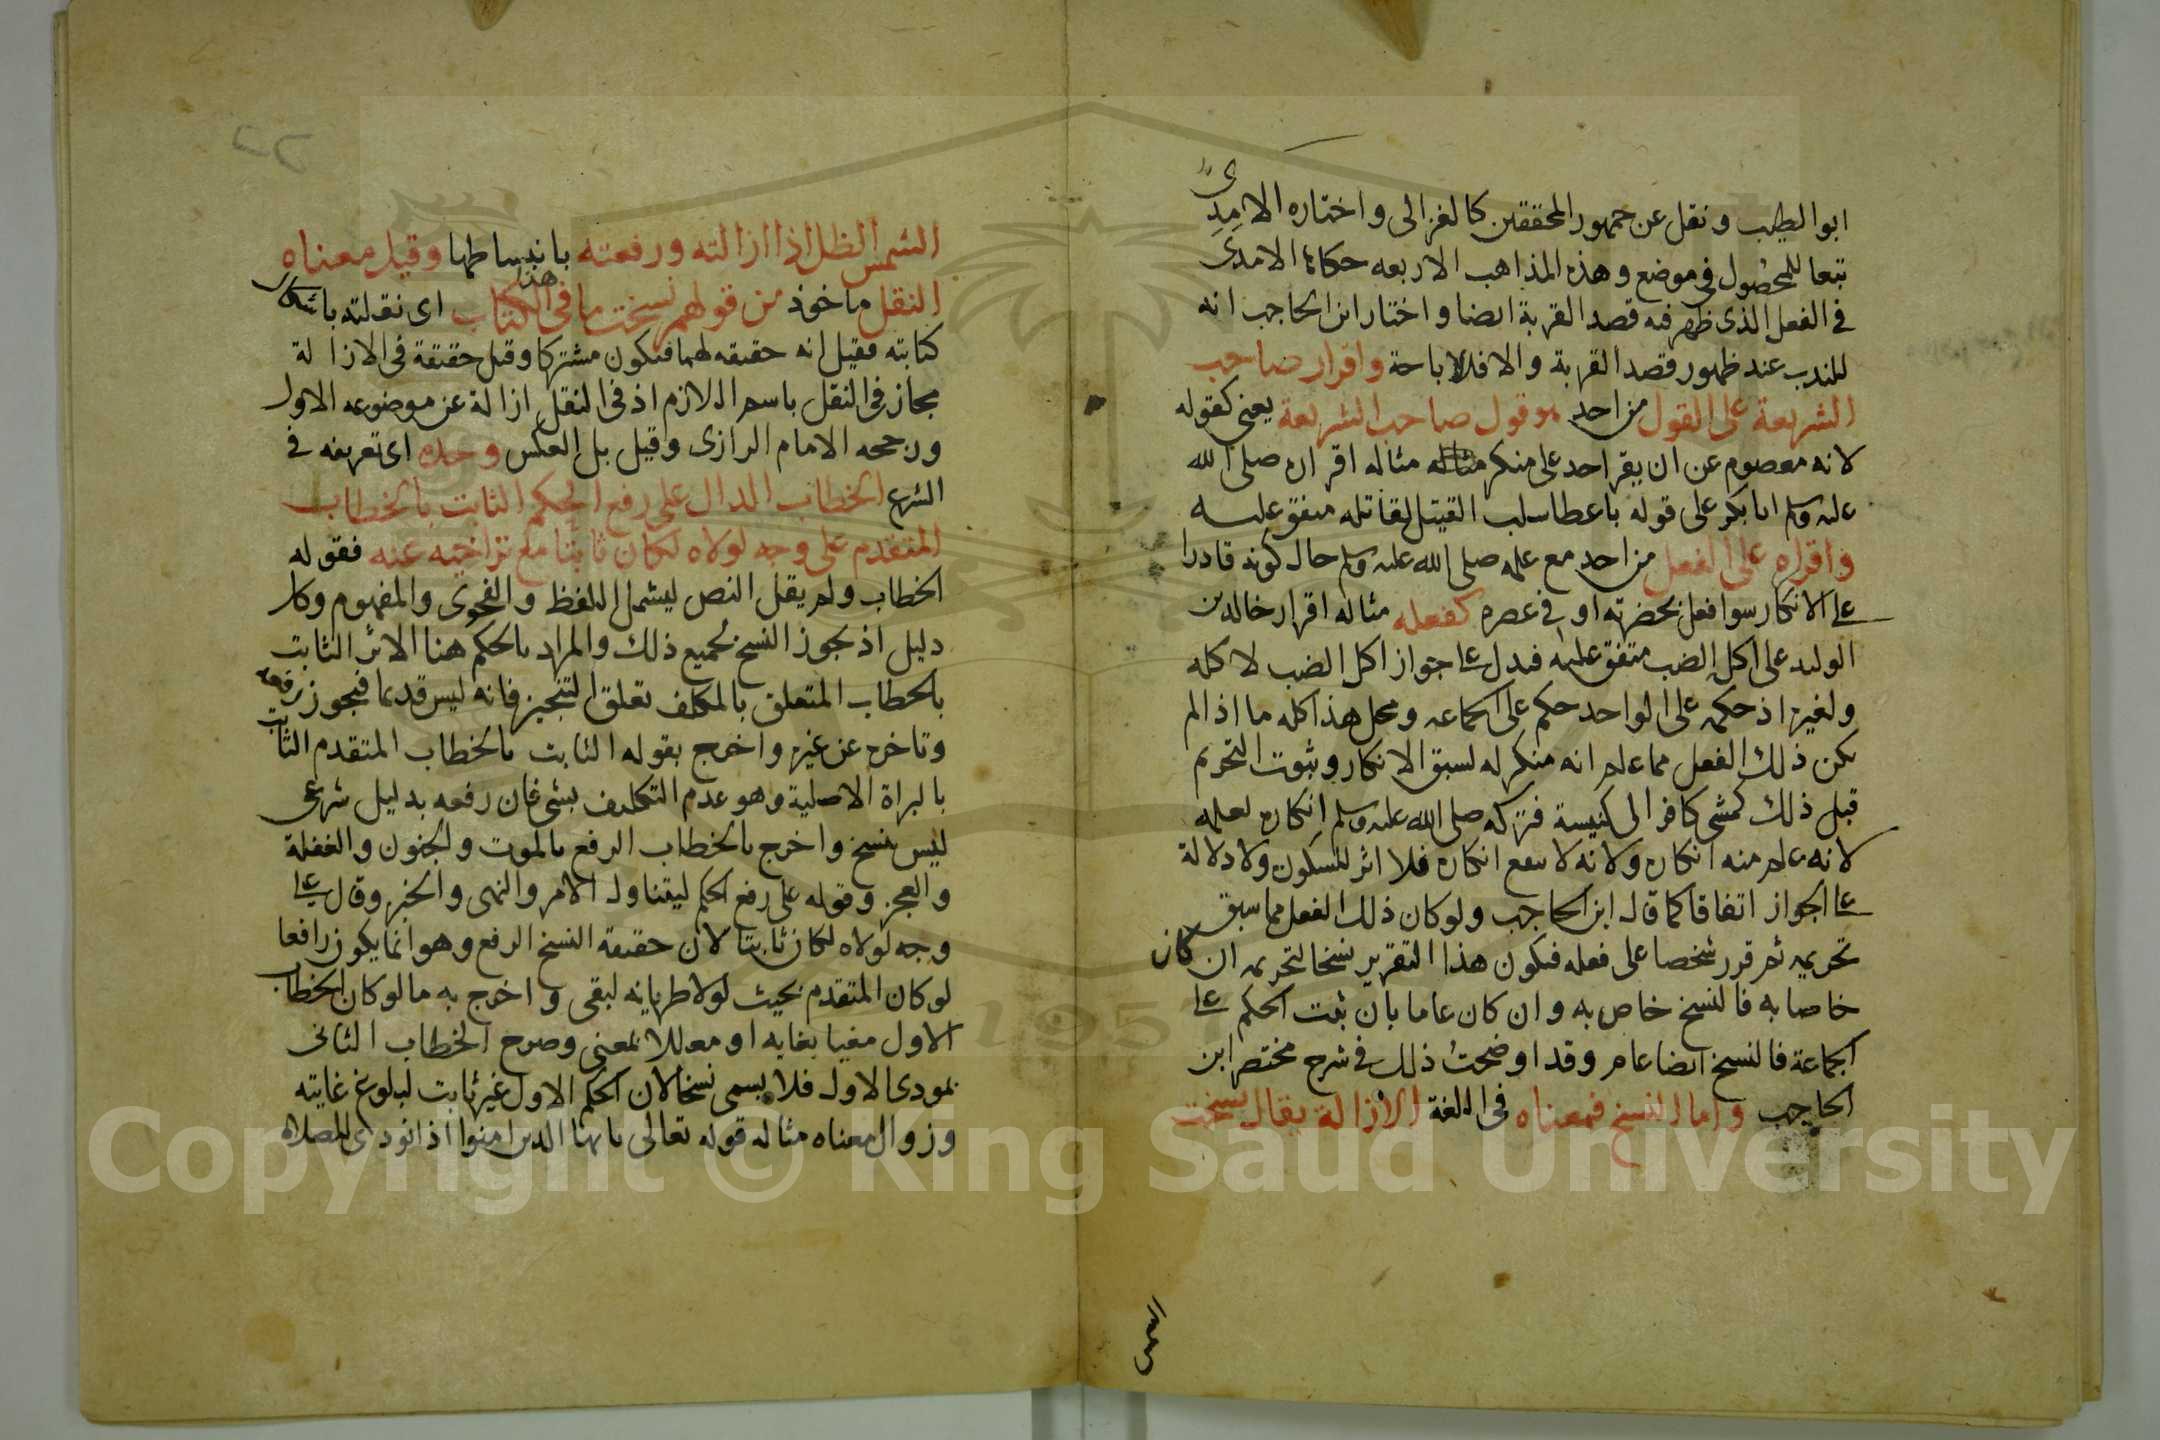 ابو الطيب ونقل عن جمهور المحققين كالغزالى واختاره الامدى
تبعا للمحصول فى موضع وهذه المذاهب الاربعه حكاها الامدى
فى الفعل الذى ظهر فيه قصد القربة ايضا واختار ابن الحاجب انه
للندب عند ظهور قصد القربة والا فللاباحة واقرار صاحب
الشريعة على القول من احد هو قول صاحب الشريعة يعنى كقوله
لانه معصوم عن ان يقر احد على منكر مثاله اقراره صلى الله
عليه وسلم ابا بكر على قوله باعطا سلب القتيل لقاتله متفق عليه
واقراره على الفعل من احد مع علمه صلى الله عليه وسلم حال كونه قادرا
على الانكار سوا فعل بحضرته او فى عصره كفعله مثاله اقرار خالد بن
الوليد على اكل الضب متفق عليه فيدل على جواز اكل الضب لا كله
ولغيره اذ حكمه على الواحد حكم على الجماعه ومحل هذا كله ما اذا لم
يكن ذلك الفعل مما علم انه منكر له لسبق الانكار وثبوت التحريم
قبل ذلك كمشى كافر الى كنيسة فتركه صلى الله عليه وسلم انكاره لعلمه
لانه علم منه انكاره ولانه لا ينفع انكاره فلا اثر للسكون ولا دلالة
على الجواز اتفاقا كما قال ابن الحاجب ولو كان ذلك الفعل مما سبق
تحريمه ثم قرر شخصا على فعله فيكون هذا التقرير نسخا لتحريمه ان كان
خاصا به فالنسخ خاص به وان كان عاما بان ثبت الحكم على
الجماعة فالنسخ ايضا عام وقد اوضحت ذلك فى شرح مختصر ابن
الحاجب واما النسخ فمعناه فى اللغة الازالة يقال نسخت
الشمس
الشمس الظل اذا ازالته ورفعته بانبساطها وقيل معناه
النقل ماخوذ من قولهم نسخت ما فى هذا الكتاب اى نقلته باشكال
كتابته فقيل انه حقيقه لهما فيكون مشتركا وقيل حقيقة فى الازالة
مجاز فى النقل باسم اللازم اذ فى النقل ازالة عن موضوعه الاول
ورجحه الامام الرازى وقيل بل العكس وحده اى تعريفه فى
الشرع الخطاب الدال على رفع الحكم الثابت بالخطاب
المتقدم على وجه لولاه لكان ثابتا مع تراخيه عنه فقوله
الخطاب ولم يقل النص ليشمل اللفظ والفحوى والمفهوم وكل
دليل اذ يجوز النسخ بجميع ذلك والمراد بالحكم هنا الاثر الثابت
بالخطاب المتعلق بالمكلف تعلق التنجيز فانه ليس قديما فيجوز رفعه
وتاخره عن غيره واخرج بقوله الثابت بالخطاب المتقدم الثابت
بالبراة الاصلية وهو عدم التكليف بشى فان رفعه بدليل شرعى
ليس بنسخ واخرج بالخطاب الرفع بالموت والجنون والغفلة
والعجز وقوله على رفع الحكم ليتناول الامر والنهى والخبر وقال على
وجه لولاه لكان ثابتا لان حقيقة النسخ الرفع وهو انما يكون رافعا
لو كان المتقدم بحيث لولا طريانه لبقى واخرج به ما لو كان الخطاب
الاول مغيا بغاية او معللا بمعنى وصرح الخطاب الثانى
بمودى الاول فلا يسمى نسخا لان الحكم الاول غير ثابت لبلوغ غايته
وزوال معناه مثاله قوله تعالى يا يها الذين امنوا اذا نودى للصلاه
Copyright © King Saud University
1957